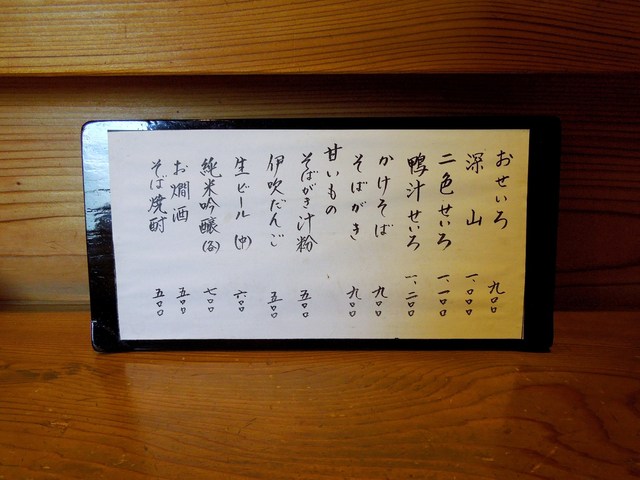 おせいろ 九〇〇
深山 一、〇〇〇
二色せいろ 一、一〇〇
鴨汁せいろ 一、二〇〇
かけそば 九〇〇
そばがき 九〇〇
甘いもの
そばがき汁粉 五〇〇
伊吹だんご 五〇〇
生ビール(中) 六〇〇
純米吟醸(冷) 七〇〇
お燗酒 五〇〇
そば焼酎 五〇〇